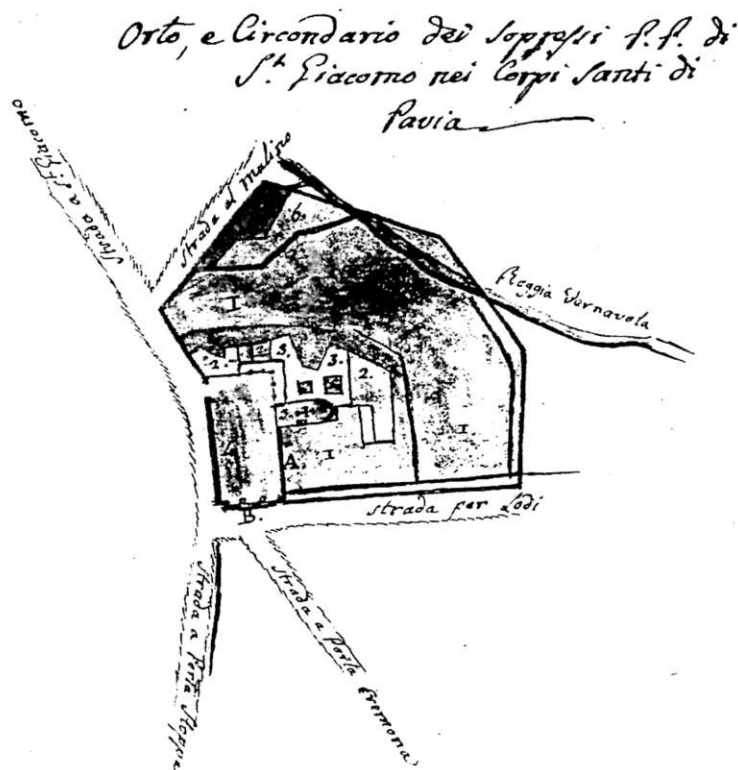 Orto, e Circondario dei Soppressi P.P. di
S.t Giacomo nei Corpi Santi di
Pavia
Strada a S.t Giacomo
strada al molino
6.
Roggia Vernavola
I
2.
3.
3.
2.
3.
4
A
A
I
I
B.
strada per Lodi
Strada a Porta Stoppa
Strada a Porta Cremona